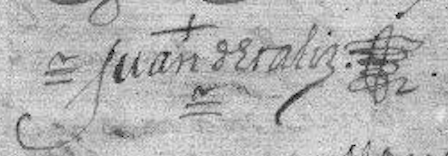 Juan de raliz